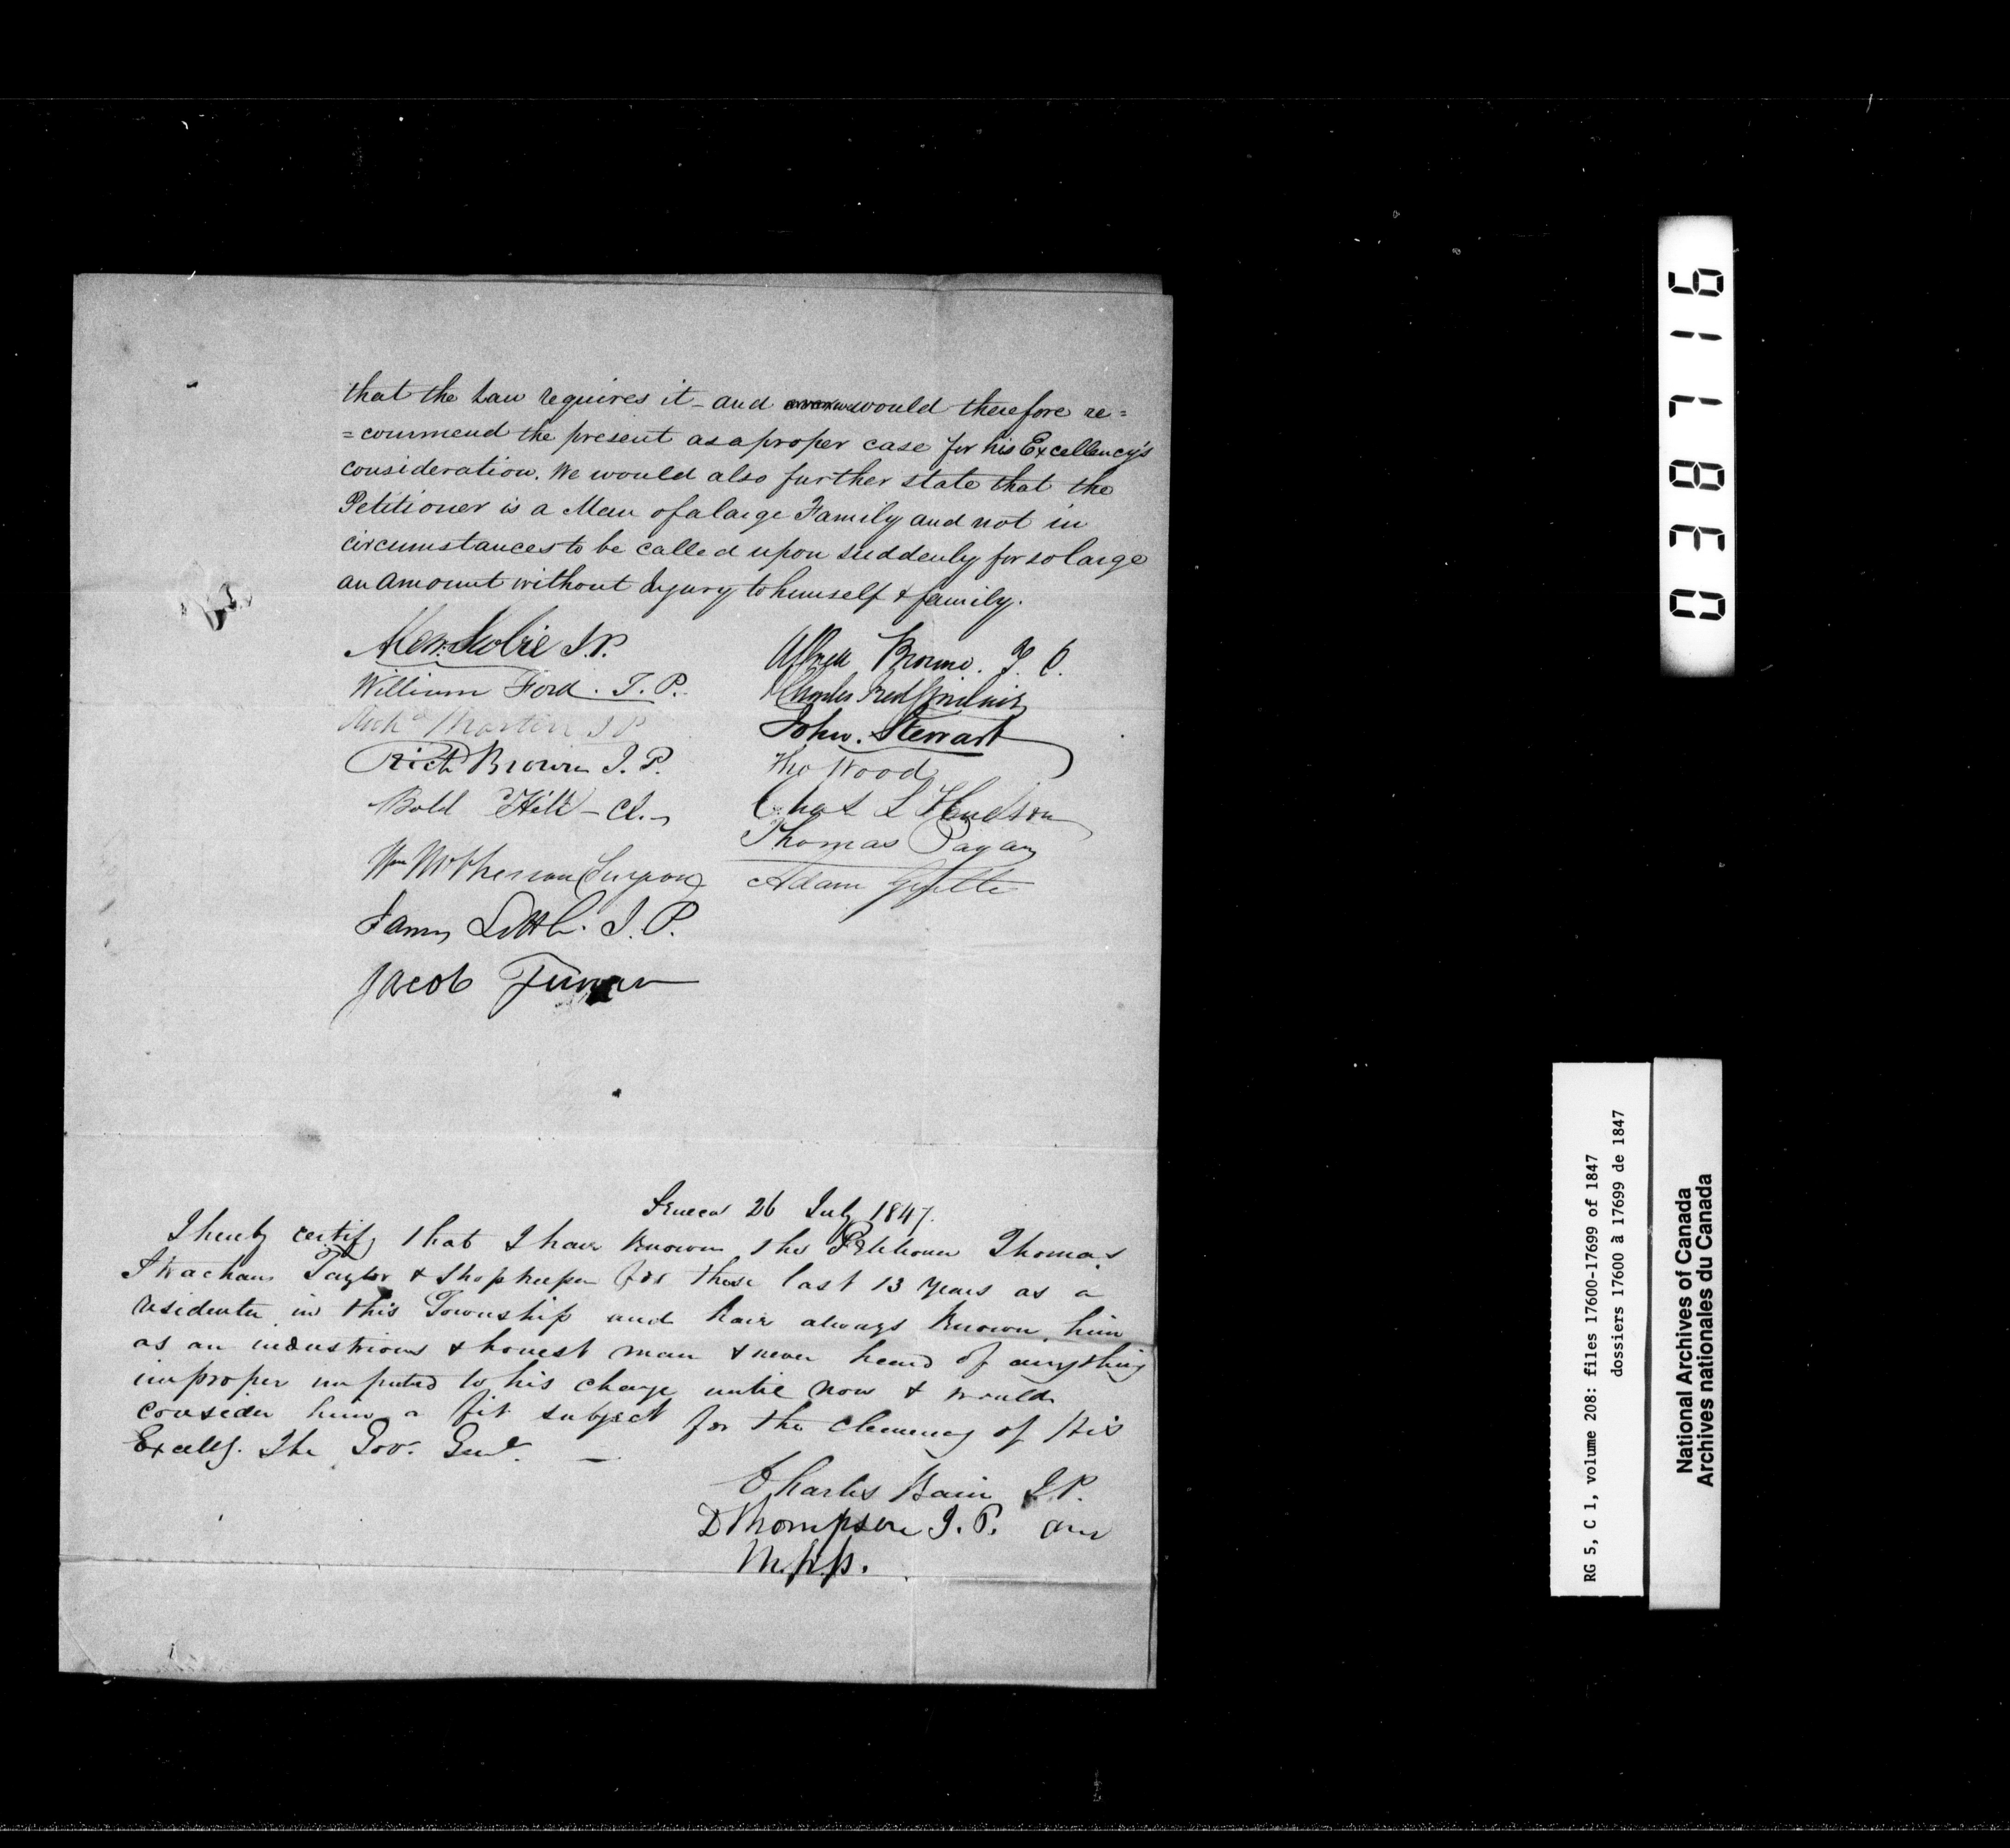 that the Law requires it – and would therefore re=
=commend the present as a proper case for his Excellency's
consideration. We would also further state that the
Petitioner is a Man of a large Family and not in
circumstances to be called upon suddenly for so large
an amount without Injury to himself & family.
J.P.
William Ford. J.P.
Richd Martin JP
Richd Brown J.P.
Bold Hill – Cl.
Wm McPherson Surgeon
James Little. J.P.
Jacob
Brown. J P.
Charles
John. Stewart
Tho Wood
Chas L Hudson
Thomas Pagan
Adam
Seneca 26 July 1847.
I hereby certify that I have known the Petitioner Thomas
Strachan Taylor & Shopkeeper for these last 13 Years as a
residenter in this Township and have always known him
as an industrious & honest man & never heard of anything
improper imputed to his charge until now & would
consider him a fit subject for the clemency of His
Excelly. The Govr. Genl. –
Charles Bain J.P.
D Thompson J.P. and
M.p.p.
038716
RG 5, C 1, volume 208: files 17600-17699 of 1847
dossiers 17600 à 17699 de 1847
National Archives of Canada
Archives nationales du Canada